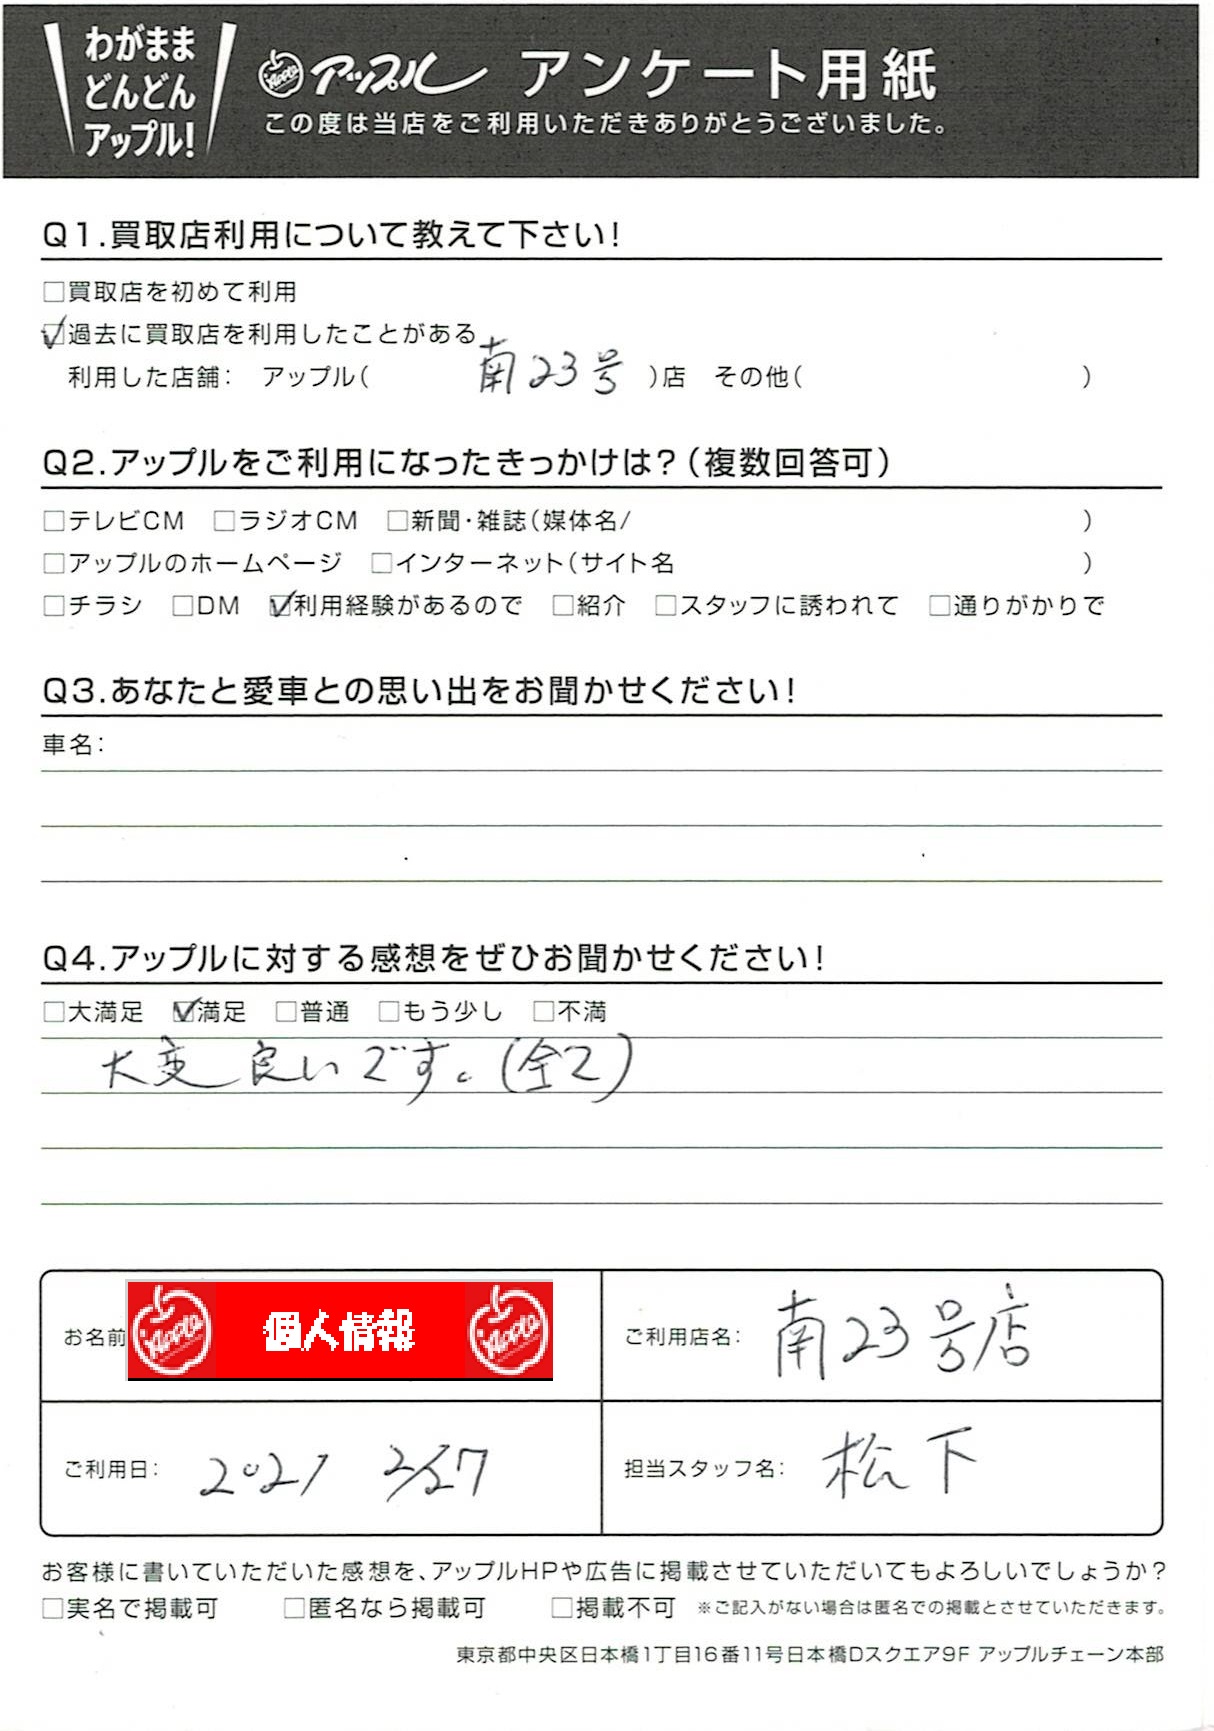 わがまま
どんどん
アップル!
アップル アンケート用紙
この度は当店をご利用いただきありがとうございました。
Q1.買取店利用について教えて下さい!
□買取店を初めて利用
☑過去に買取店を利用したことがある
利用した店舗: アップル( 南23号 )店 その他( )
Q2.アップルをご利用になったきっかけは?(複数回答可)
□テレビCM □ラジオCM □新聞・雑誌(媒体名/ )
□アップルのホームページ □インターネット(サイト名 )
□チラシ □DM ☑利用経験があるので □紹介 □スタッフに誘われて □通りがかりで
Q3.あなたと愛車との思い出をお聞かせください!
車名:
Q4.アップルに対する感想をぜひお聞かせください!
□大満足 ☑満足 □普通 □もう少し □不満
大変良いです。(全て)
お名前 Apple 個人情報 Apple
ご利用店名: 南23号店
ご利用日: 2021 2/27
担当スタッフ名: 松下
お客様に書いていただいた感想を、アップルHPや広告に掲載させていただいてもよろしいでしょうか?
□実名で掲載可 □匿名なら掲載可 □掲載不可 ※ご記入がない場合は匿名での掲載とさせていただきます。
東京都中央区日本橋1丁目16番11号日本橋Dスクエア9F アップルチェーン本部